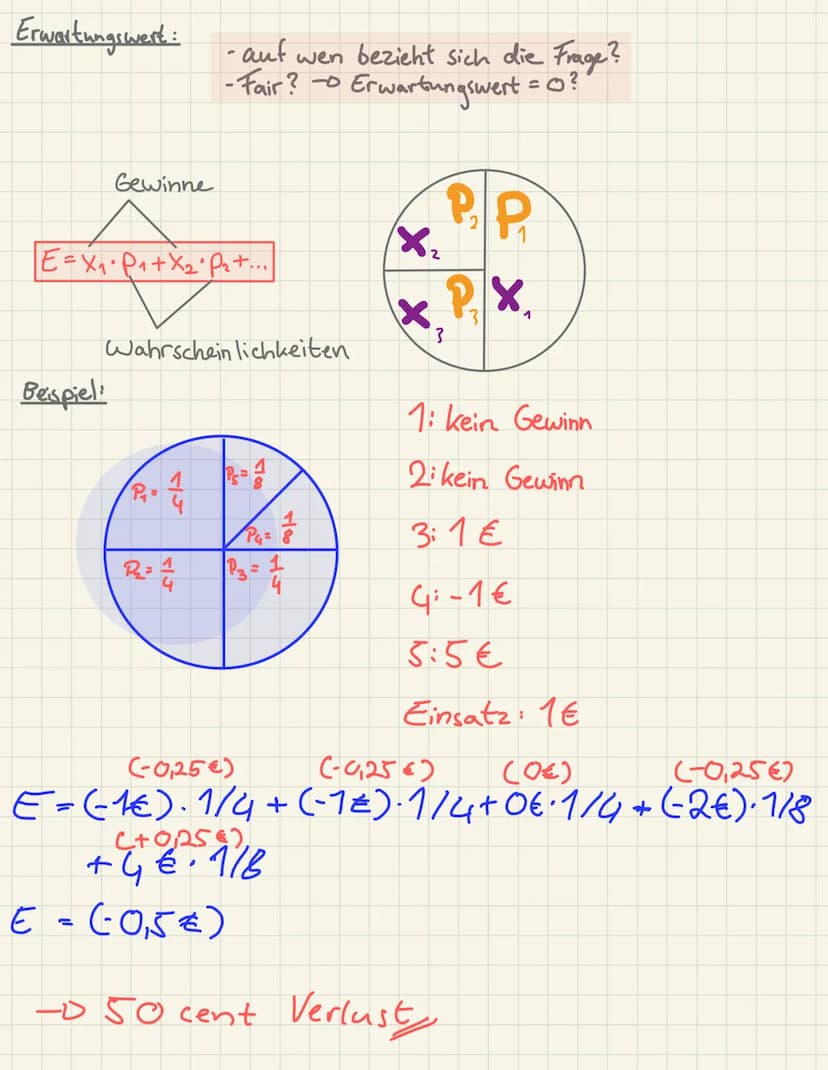 Erwartungswert:
- auf wen bezieht sich die Frage?
- Fair? → Erwartungswert = 0?
Gewinne
E = x₁ · P₁ + x₂ · P₂ + ...
Wahrscheinlichkeiten
P₂ P₁
x₂
P₃ x₁
x₃
Beispiel:
P₁ = 1/4
P₅ = 1/8
P₄ = 1/8
P₂ = 1/4
P₃ = 1/4
1: kein Gewinn
2: kein Gewinn
3: 1 €
4: -1 €
5: 5 €
Einsatz: 1 €
(-0,25 €) (-0,25 €) (0€) (-0,25 €)
E = (-1€) · 1/4 + (-1€) · 1/4 + 0€ · 1/4 + (-2€) · 1/8
(+0,25 €)
+ 4 € · 1/8
E = (-0,5 €)
→ 50 cent Verlust